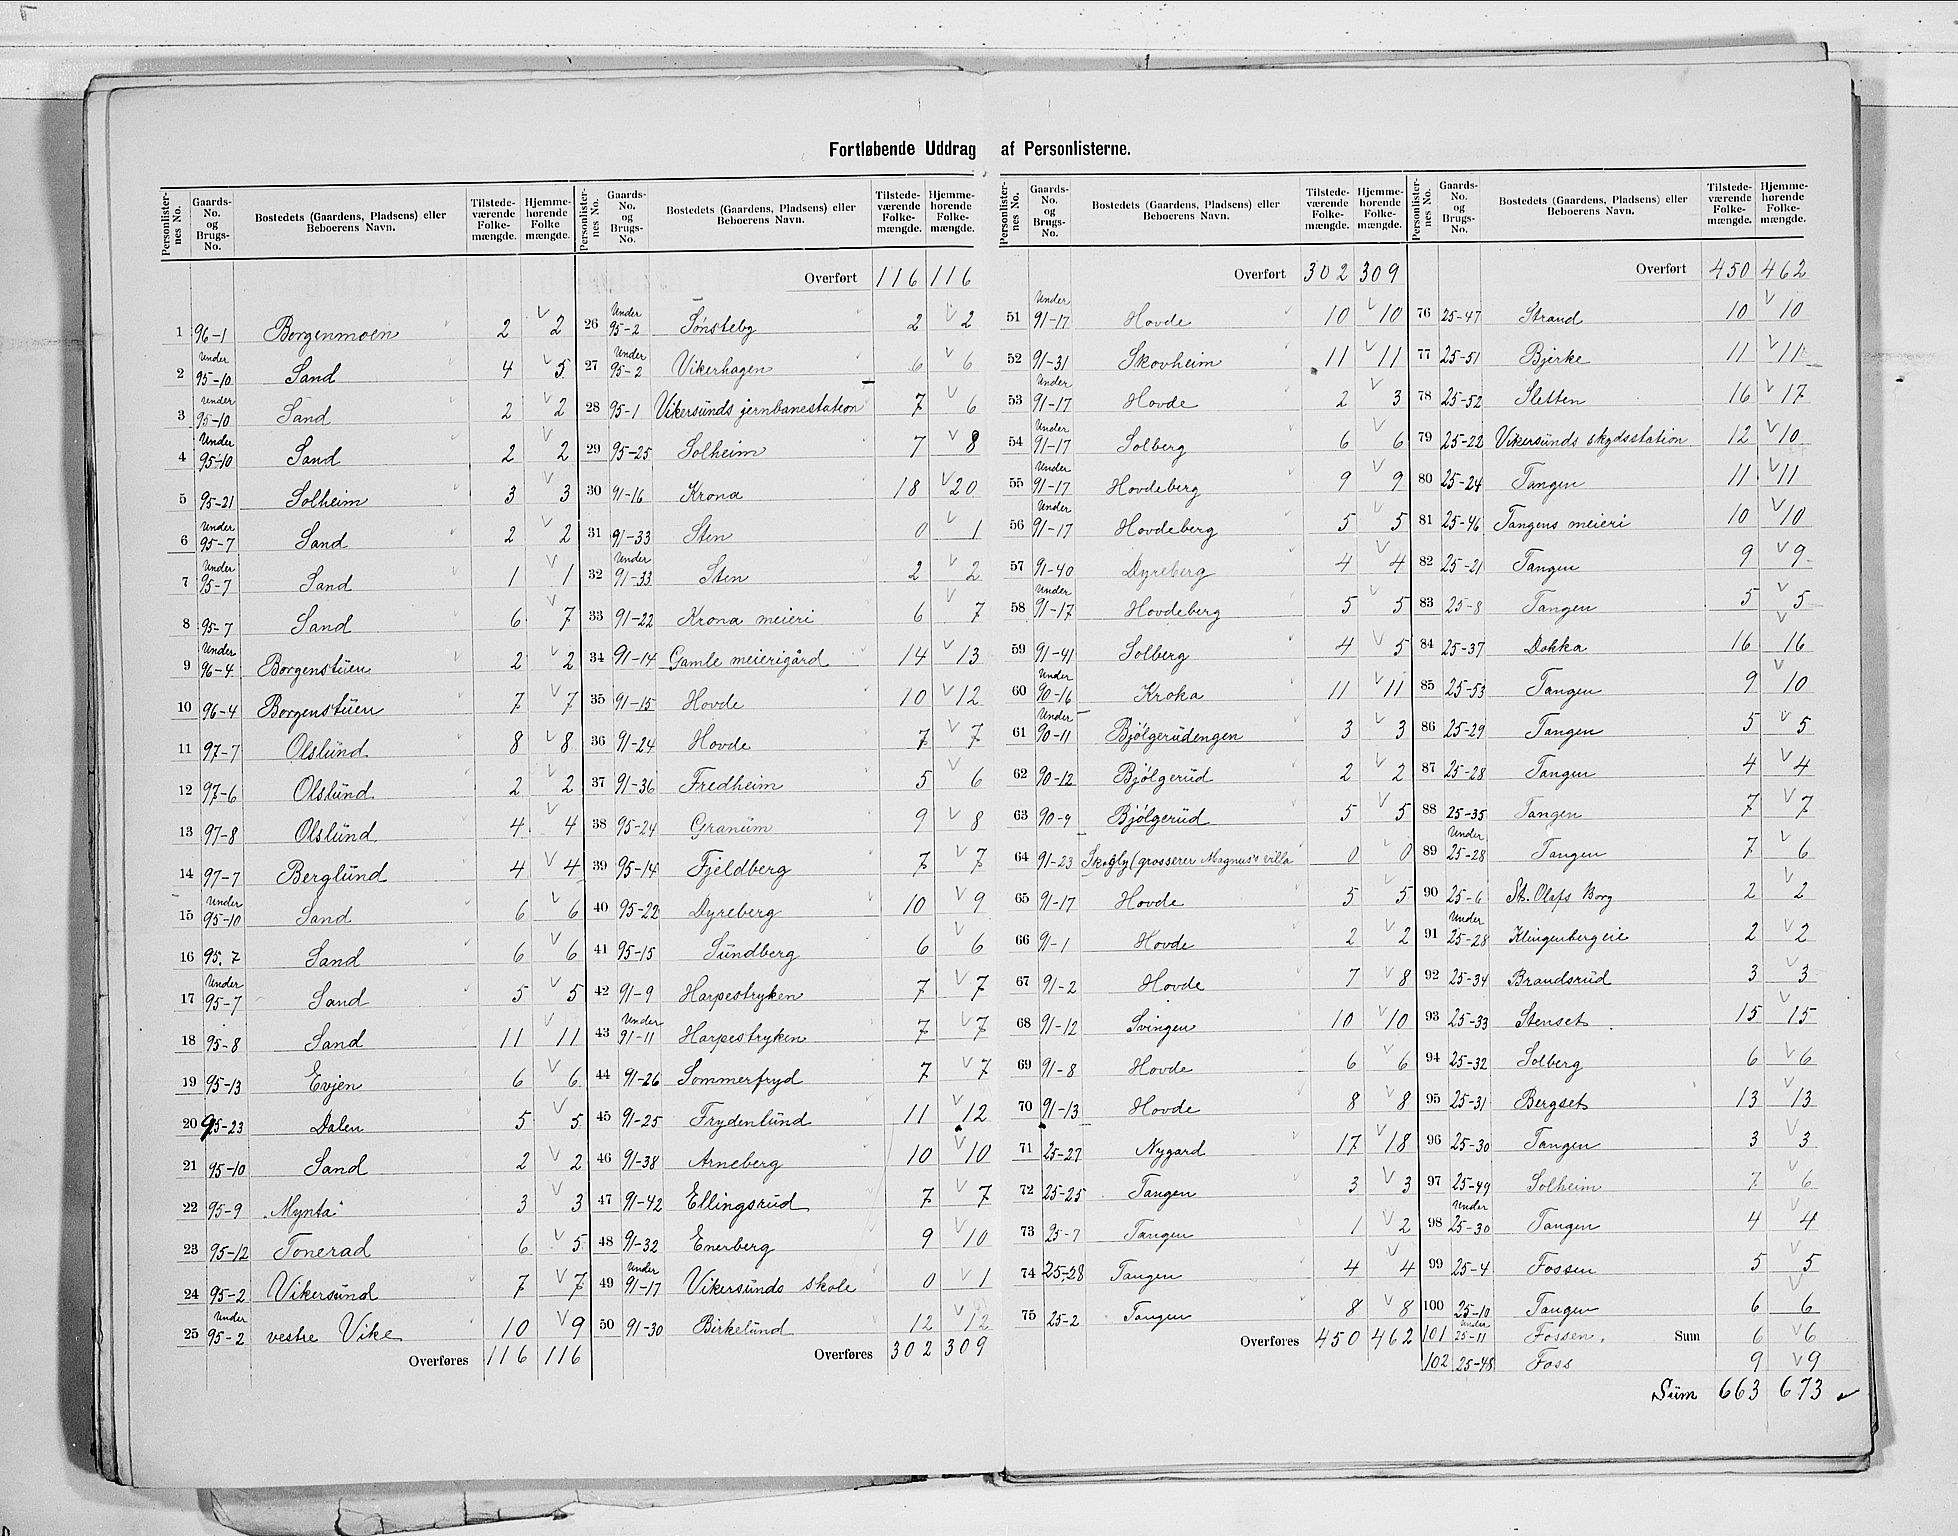 Fortløbende Uddrag af Personlisterne.
Personlister-nes No. | Gaards-No. og Brugs-No. | Bostedets (Gaardens, Pladsens) eller Beboerens Navn. | Tilstede-værende Folke-mængde. | Hjemme-hørende Folke mængde.
1 96-1 Borgenmoen 2 2
2 Under 95-10 Sand 4 5
3 Under 95-10 Sand 2 2
4 Under 95-10 Sand 2 2
5 95-21 Solheim 3 3
6 Under 95-7 Sand 2 2
7 Under 95-7 Sand 1 1
8 95-7 Sand 6 7
9 Under 96-4 Borgenstuen 2 2
10 96-4 Borgenstuen 7 7
11 97-7 Olslund 8 8
12 97-6 Olslund 2 2
13 97-8 Olslund 4 4
14 97-7 Berglund 4 4
15 Under 95-10 Sand 6 6
16 95.7 Sand 6 6
17 Under 95-7 Sand 5 5
18 95-8 Sand 11 11
19 95-13 Evjen 6 6
20 95-23 Dalen 5 5
21 95-10 Sand 2 2
22 95-9 "Mynta" 3 3
23 95-12 Tonerad 6 5
24 95-2 Vikersund 7 7
25 Under 95-2 vestre Vike 10 9
Overføres 116 116
Personlister-nes No. | Gaards-No. og Brugs-No. | Bostedets (Gaardens, Pladsens) eller Beboerens Navn. | Tilstede-værende Folke-mængde. | Hjemme-hørende Folke-mængde.
Overført 116 116
26 Under 95-2 Tønsteby 2 2
27 Under 95-2 Vikerhagen 6 6
28 95-1 Vikersunds jernbanestation 7 6
29 95-25 Solheim 7 8
30 91-16 Krona 18 20
31 91-33 Sten 0 1
32 Under 91-33 Sten 2 2
33 91-22 Krona meieri 6 7
34 91-14 Gamle meierigård 14 13
35 91-15 Hovde 10 12
36 91-24 Hovde 7 7
37 91-36 Fredheim 5 6
38 95-24 Granum 9 8
39 95-14 Fjeldberg 7 7
40 95-22 Dyreberg 10 9
41 95-15 Sundberg 6 6
42 91-9 Harpestryken 7 7
43 Under 91-11 Harpestryken 7 7
44 91-26 Sommerfryd 7 7
45 91-25 Frydenlund 11 12
46 91-38 Arneberg 10 10
47 91-42 Ellingsrud 7 7
48 91-32 Enerberg 9 10
49 Under 91-17 Vikersunds skole 0 1
50 91-30 Birkelund 12 12
Overføres 302 309
Personlister-nes No. | Gaards-No. og Brugs-No. | Bostedets (Gaardens, Pladsens) eller Beboerens Navn. | Tilstede-værende Folke-mængde. | Hjemme-hørende Folke-mængde.
Overført 302 309
51 Under 91-17 Hovde 10 10
52 91-31 Skovheim 11 11
53 Under 91-17 Hovde 2 3
54 Under 91-17 Solberg 6 6
55 Under 91-17 Hovdeberg 9 9
56 Under 91-17 Hovdeberg 5 5
57 91-40 Dyreberg 4 4
58 Under 91-17 Hovdeberg 5 5
59 91-41 Solberg 4 5
60 Under 90-16 Kroka 11 11
61 Under 90-11 Bjølgerudengen 3 3
62 90-12 Bjølgerud 2 2
63 90-9 Bjølgerud 5 5
64 91-23 Skogly (grosserer Magnus's villa 0 0
65 91-17 Hovde 5 5
66 91-1 Hovde 2 2
67 91-2 Hovde 7 8
68 91-12 Svingen 10 10
69 91-8 Hovde 6 6
70 91-13 Hovde 8 8
71 25-27 Nygard 17 18
72 25-25 Tangen 3 3
73 25-7 Tangen 1 2
74 25-28 Tangen 4 4
75 25-2 Tangen 8 8
Overføres 450 462
Personlister-nes No. | Gaards-No. og Brugs-No. | Bostedets (Gaardens, Pladsens) eller Beboerens Navn. | Tilstede-værende Folke-mængde. | Hjemme-hørende Folke-mængde.
Overført 450 462
76 25-47 Strand 10 10
77 25-51 Bjerke 11 11
78 25-52 Sletten 16 17
79 25-22 Vikersunds skydsstation 12 10
80 25-24 Tangen 11 11
81 25-46 Tangens meieri 10 10
82 25-21 Tangen 9 9
83 25-8 Tangen 5 5
84 25-37 Dokka 16 16
85 25-53 Tangen 9 10
86 25-29 Tangen 5 5
87 25-28 Tangen 4 4
88 25-35 Tangen 7 7
89 Under 25-28 Tangen 7 6
90 25-6 St. Olafs Borg 2 2
91 Under 25-28 Klingenberg eie 2 2
92 25-34 Brandsrud 3 3
93 25-33 Stenset 15 15
94 25-32 Solberg 6 6
95 25-31 Bergset 13 13
96 25-30 Tangen 3 3
97 25-49 Solheim 7 6
98 Under 25-30 Tangen 4 4
99 25-4 Fossen 5 5
100 25-10 Tangen 6 6
101 Under 25-11 Fossen. Sum 6 6
102 25-48 Foss 9 9
Sum 663 673